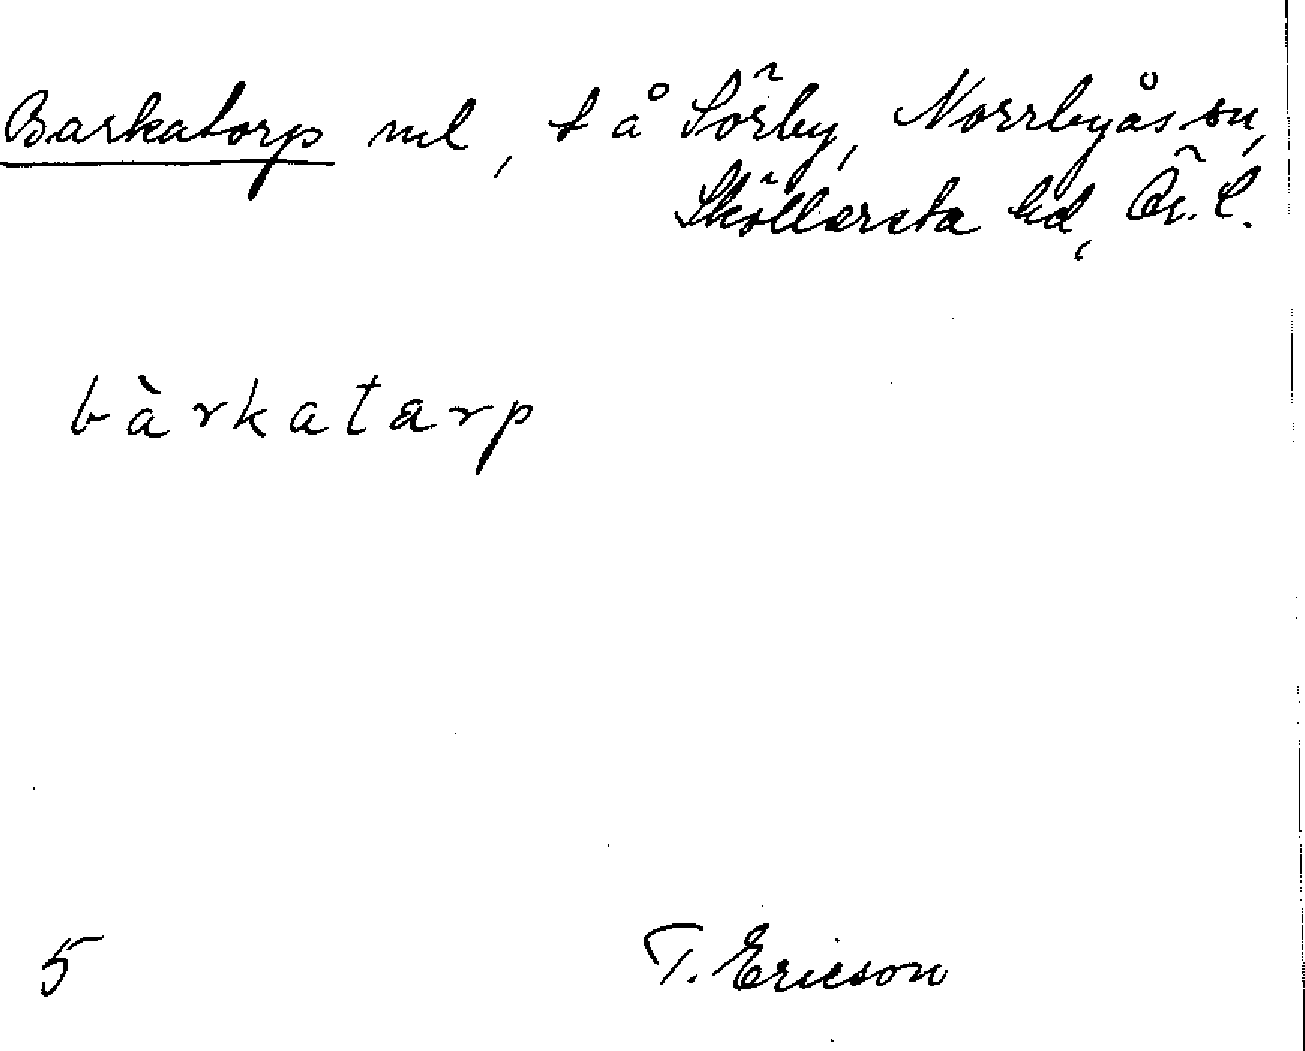 Barkatorp ml, t å Sörby, Norrbyås sn,
Sköllersta hd, Ör. l.
bàrkatarp
5 T. Ericson